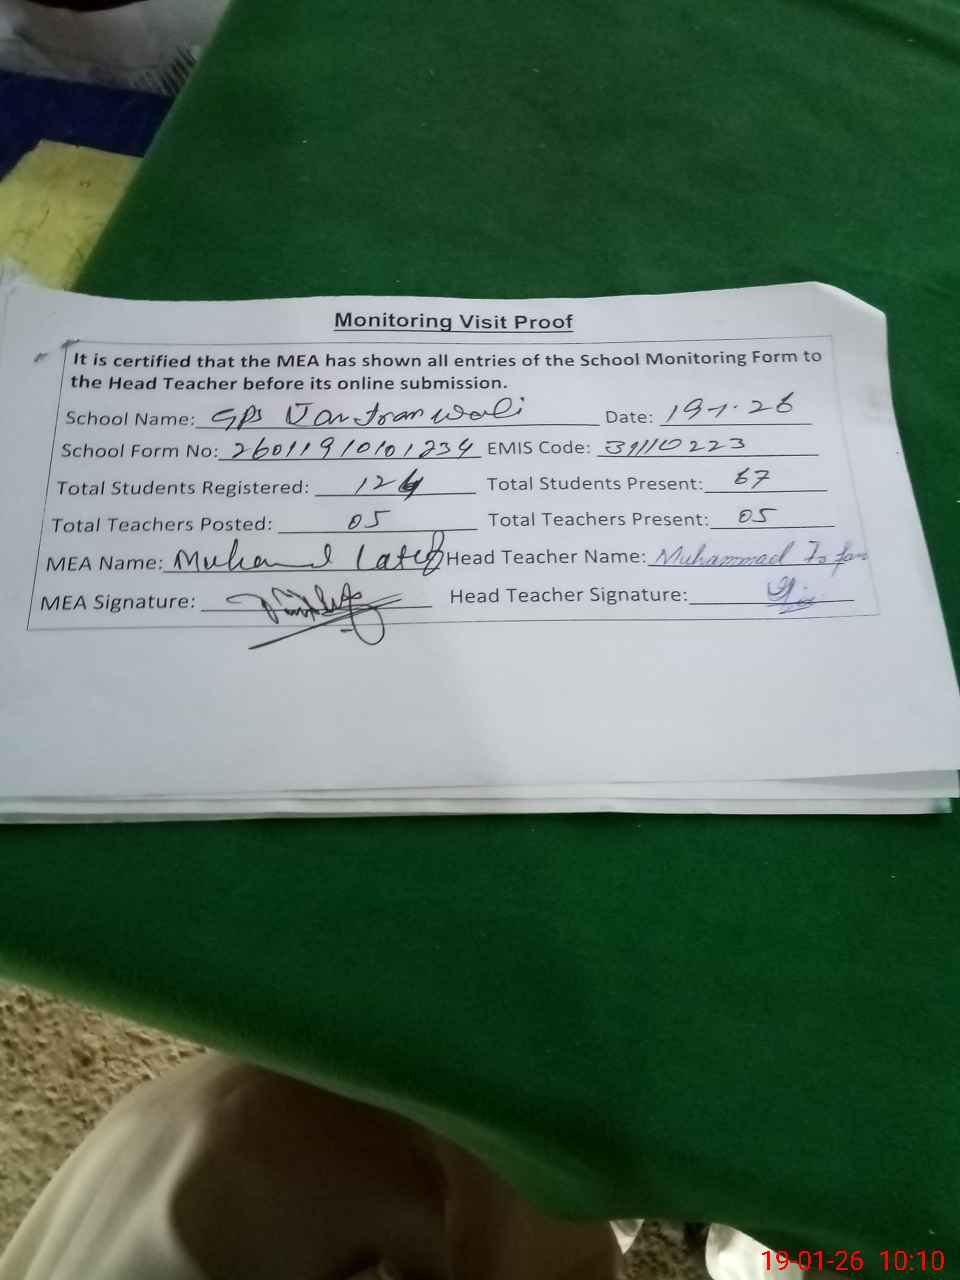 Monitoring Visit Proof
It is certified that the MEA has shown all entries of the School Monitoring Form to
the Head Teacher before its online submission.
School Name: GPS Date: 19-1-26
School Form No: 26011910101234 EMIS Code: 39110223
Total Students Registered: 124 Total Students Present: 67
Total Teachers Posted: 05 Total Teachers Present: 05
MEA Name: Latif Head Teacher Name: Muhammad
MEA Signature: Head Teacher Signature:
19-01-26 10:10